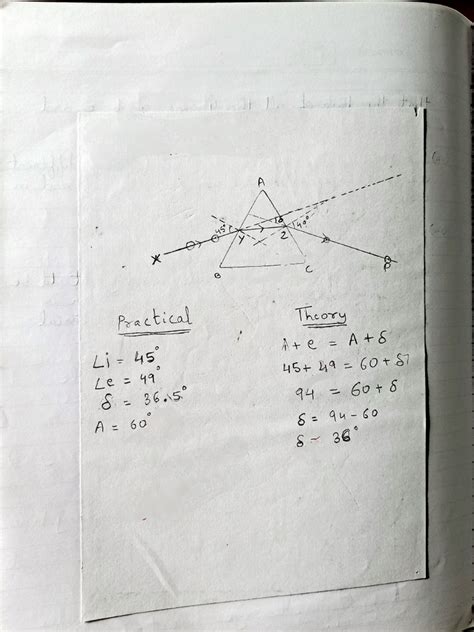 A
45°
r
δ
40°
Y
Z
X
P
B
C
Practical
Li = 45°
Le = 49°
δ = 36.5°
A = 60°
Theory
i + e = A + δ
45 + 49 = 60 + δ
94 = 60 + δ
δ = 94 - 60
δ - 36°